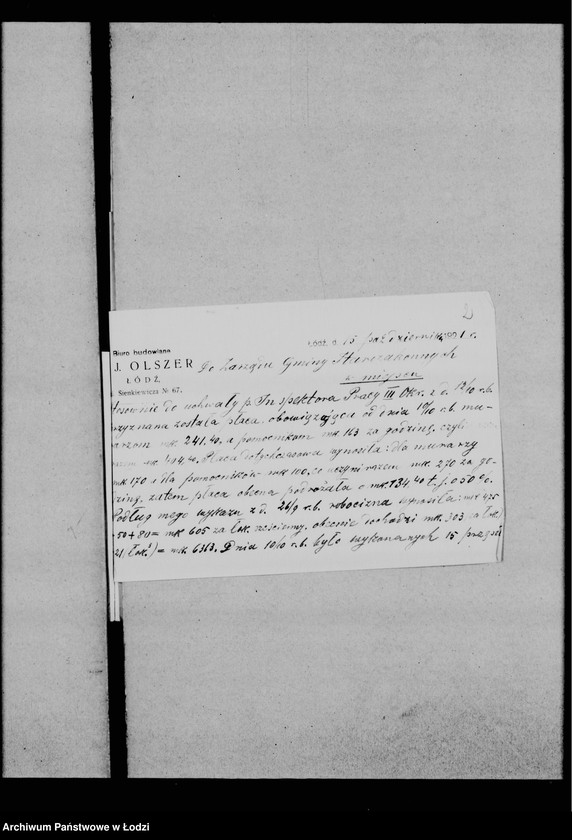 2
Łódź, d. 15 października 1921 r.
Biuro budowlane
J. OLSZER
ŁÓDŹ,
Sienkiewicza № 67.
Do Zarządu Gminy Starozakonnych
w miejscu
Stosownie do uchwały p. Inspektora Pracy III Okr. z d. 12/10 r.b.
przyznana została płaca, obowiązująca od dnia 10/10 r.b. mu-
rarzom mk. 241.40. a pomocnikom mk 163 za godzinę, czyli
razem mk. 404.40. Płaca dotychczasowa wynosiła: dla murarzy
mk 170 i dla pomocników mk 100, co uczyni razem mk. 270 za go-
dzinę, zatem płaca obecna podrożała o mk. 134.40 t.j. o 50%.
Podług mego wykazu z d. 26/9 r.b. robocizna wynosiła: mk 475
+50+80= mk 605 za łok. sześcienny, obecnie dochodzi mk. 303 za łok.)
21 łok.³)= mk. 6363. Dnia 10/10 r.b. było wykonanych 15 przęseł
Archiwum Państwowe w Łodzi